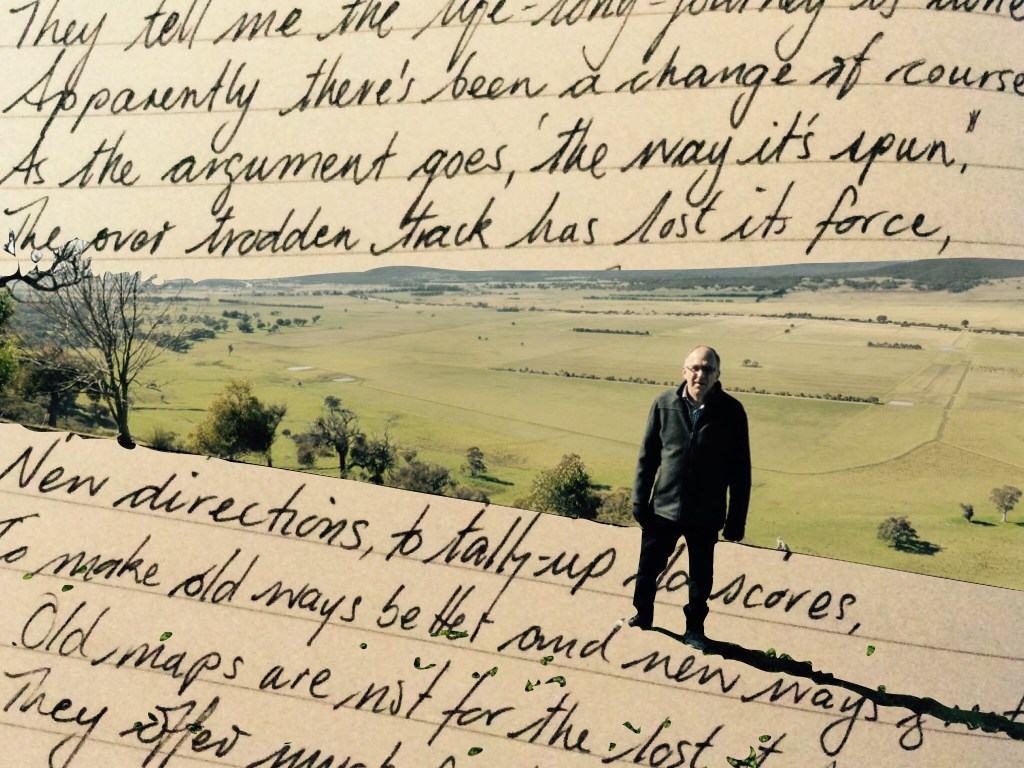 They tell me the life-long-journey is done
Apparently there's been a change of course
As the argument goes, 'the way it's spun,"
The over trodden track has lost its force,
New directions, to tally-up scores,
To make old ways better and new ways
Old maps are not for the lost
They offer much